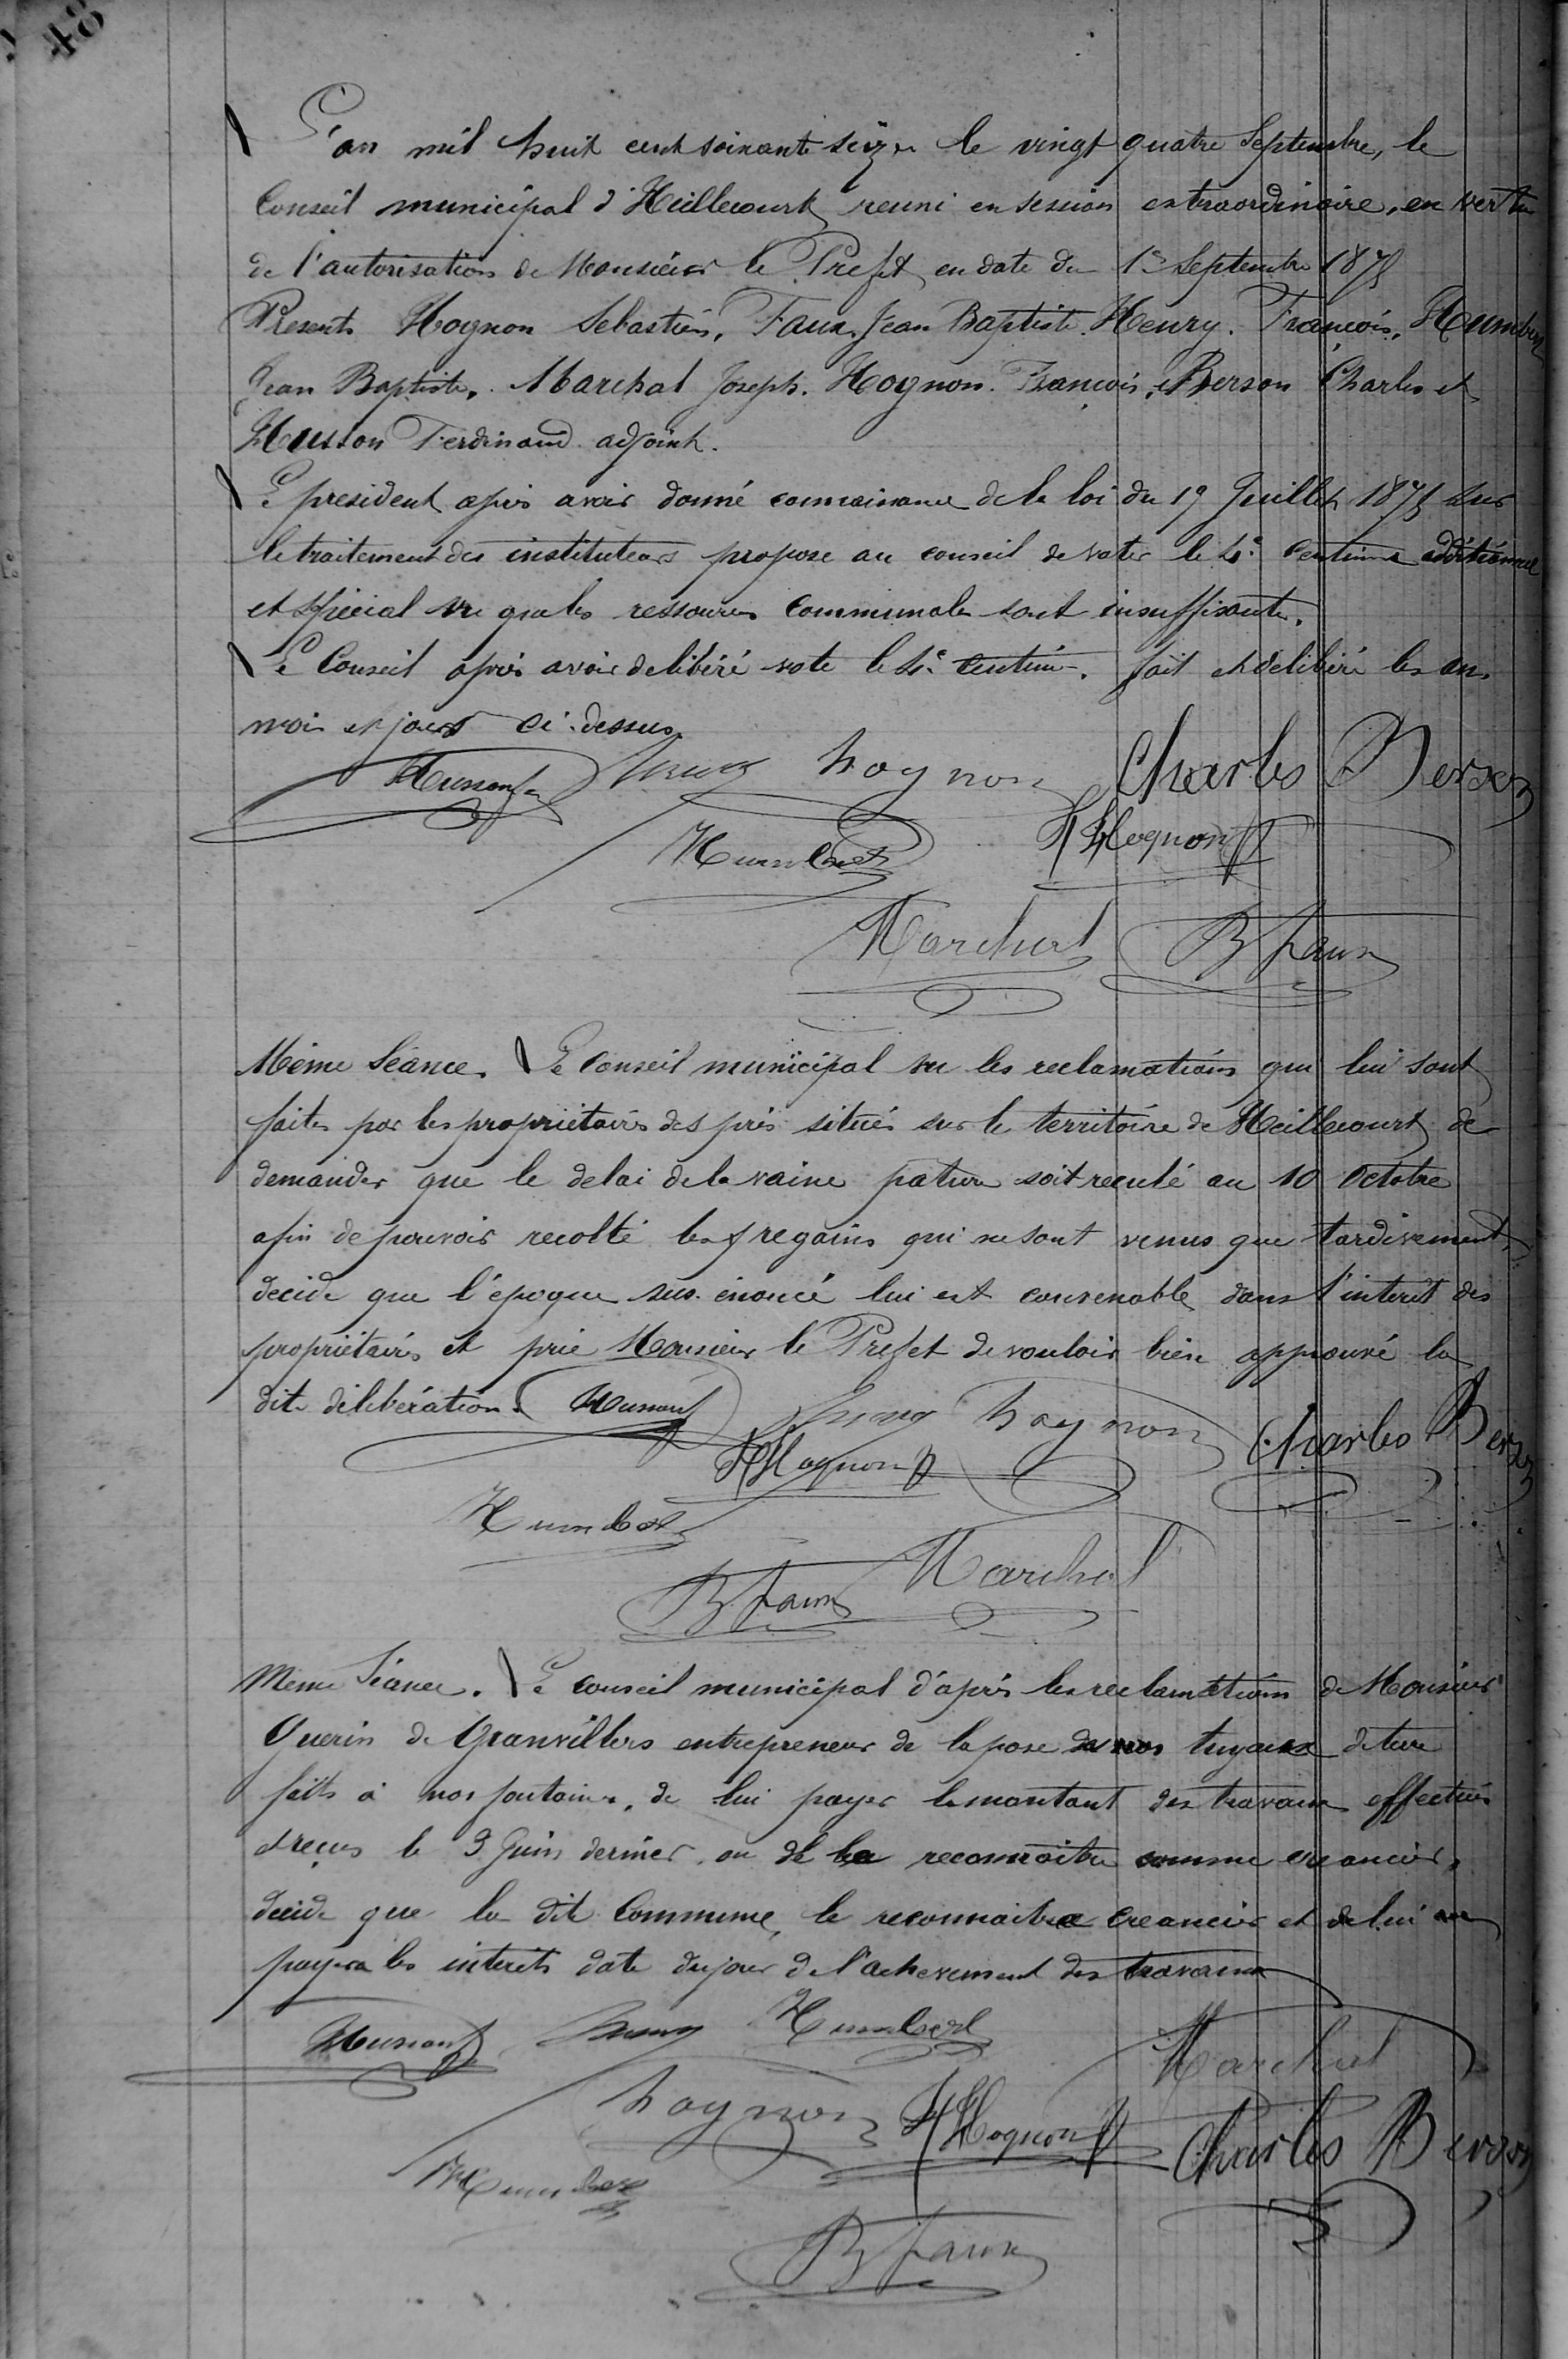 48
L'an mil huit cent soixante seize le vingt quatre Septembre, le
Conseil municipal d'Heillecourt reuni en session extraordinaire, en vertu
de l'autorisation de Monsieur le Prefet en date du 1er Septembre 1875
Presents Hognon Sebastien, Faux Jean Baptiste. Henry. François, Humbert
Jean Baptiste. Marchal Joseph. Hognon. François, Berson Charles et
Husson Ferdinand adjoint.
Le president après avoir donné connaissance de la loi du 19 Juillet 1875 sur
le traitement des instituteurs propose au conseil de voter le 4e Centime additionnel
et spécial vu que les ressources communales sont insuffisante.
Le Conseil après avoir delibéré vote le 4e Centime. fait et delibéré les an.
mois et jours ci-dessus.
Husson Henry hognon Charles Berson
Humbert Hognon
Marchal B faux
Même Séance. Le Conseil municipal vu les reclamations qui lui sont
faites par les propriétaires des prés situés sur le territoire de Heillecourt de
demander que le delai de la vaine pature soit reculé au 10 Octobre
afin de pouvoir recolté les regains qui ne sont venus que tardivement,
decide que l'époque sus-énoncé lui est convenable dans l'interêt des
propriétaires et prie Monsieur le Prefet de vouloir bien approuvé la
dite délibération. Husson Henry hognon Charles Berson
Hognon
Humbert
B faux Marchal
Meme Séance. Le conseil municipal d'après les reclamations de Monsieur
Guerin de Granvillers entrepreneur de la pose de nos tuyaux de terre
faits à nos fontaines, de lui payer le montant des travaux effectués
et reçus le 3 Juin dernier, ou de le reconnaitre comme creancier,
decide que la dite Commune, le reconnaitre creancier et de lui
payera les interets date du jour de l'achevement des travaux
Husson Henry Humbert Marchal
hognon Hognon Charles Berson
Humbert
B faux